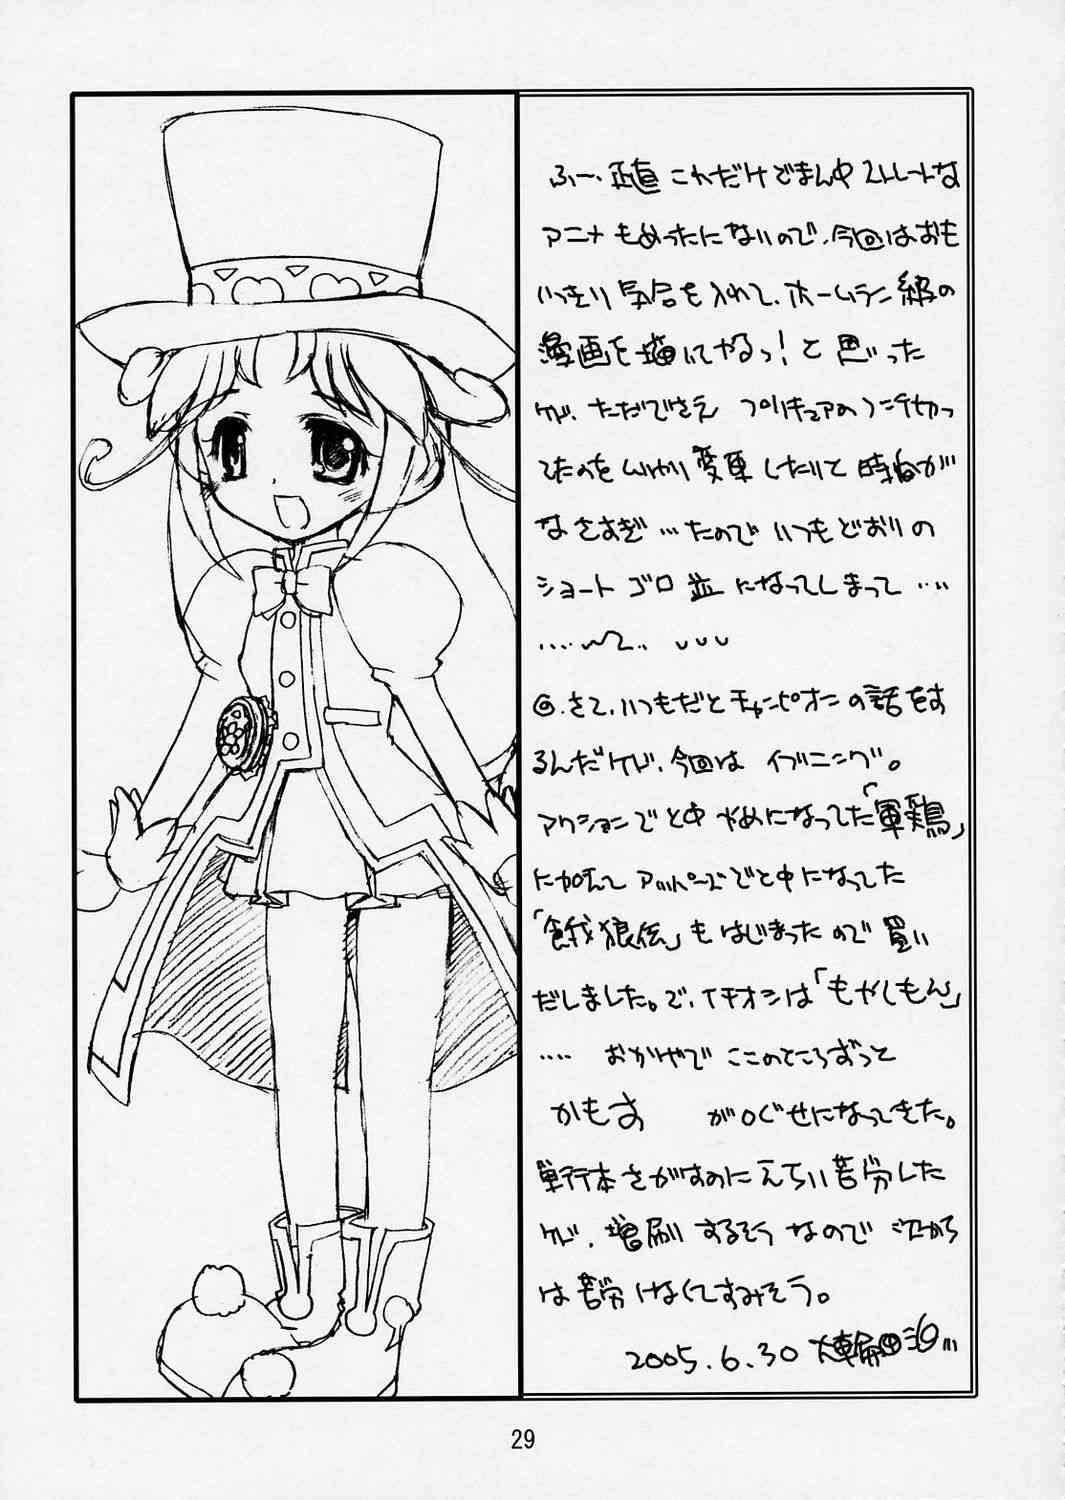 ふー、正直 これだけどまん中ストレートな
アニメもめったにないので、今回はおも
いっきり気合を入れて、ホームラン級の
漫画を描いてやるっ！と思った
けど、ただでさえ プリキュアの
したりと 時間が
なさすぎ…たので いつもどおりの
ショートゴロ並になってしまって……
……
◎、さて、いつもだとチャンピオンの話をす
るんだけど、今回は イブニング。
アクションでと中やめになってた「軍鶏」
に加えて アッパーズでと中になってた
「餓狼伝」もはじまったので 買い
だしました。で、イチオシは「もやしもん」
…… おかげで ここのところずっと
かもす が口ぐせになってきた。
単行本さがすのにえらい苦労した
けど、増刷するそうなので これから
は苦労はなくてすみそう。
2005.6.30 大輪田
29